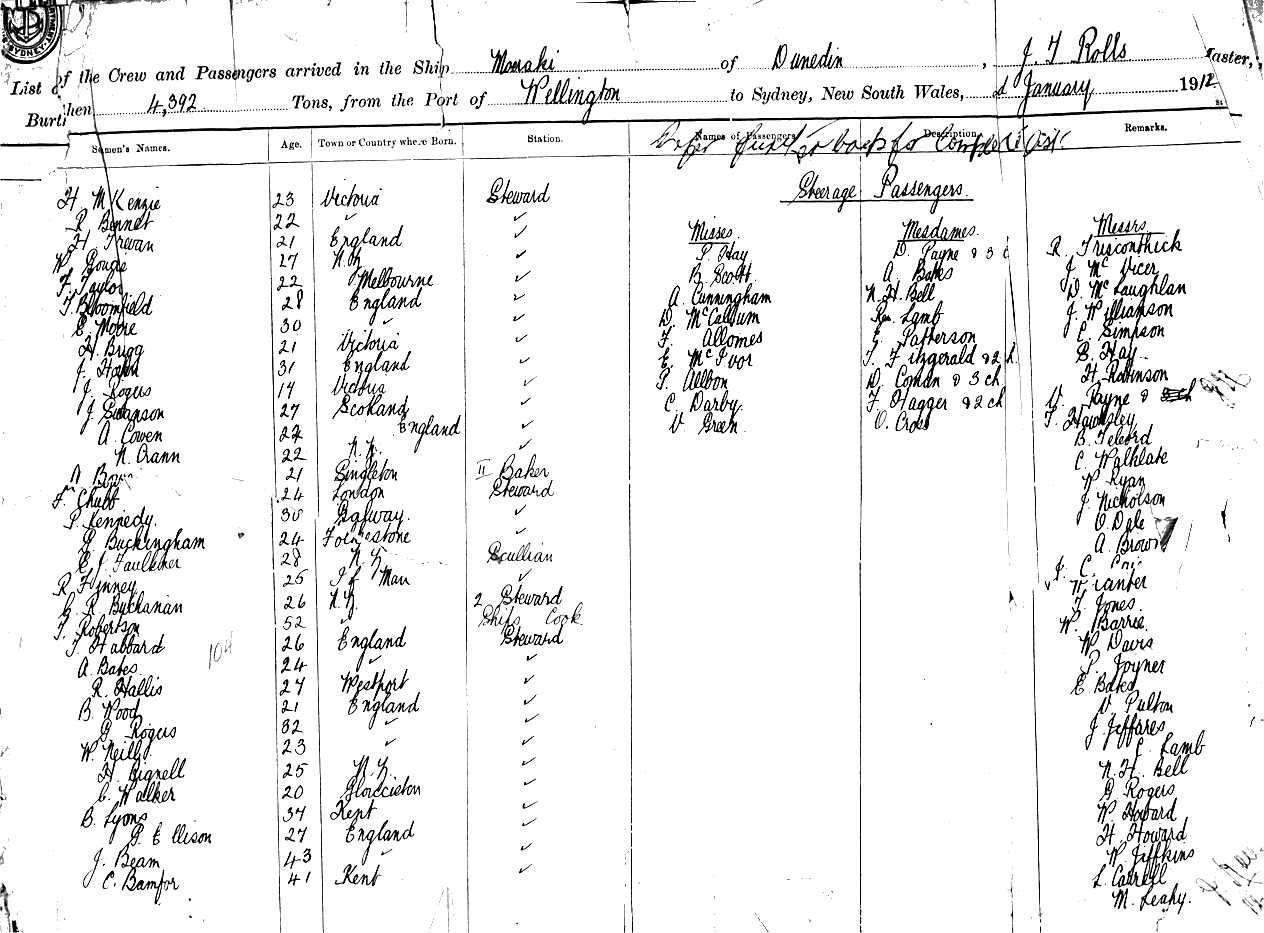 SYDNEY
List of the Crew and Passengers arrived in the Ship Moeraki of Dunedin, J T Rolls Master,
Burthen 4,392 Tons, from the Port of Wellington to Sydney, New South Wales, 2 January 1912
Seamen's Names. Age. Town or Country where Born. Station. Names of Passengers Description. Remarks.
Steerage Passengers.
H McKenzie 23 Victoria Steward
R Bennet 22 " ✓
H Trevan 21 England ✓
W Gourie 27 N.Z. ✓
F. Taylor 22 Melbourne ✓
T. Bloomfield 28 England ✓
E. Moore 30 " ✓
H. Brigg 21 Victoria ✓
J. Hahn 31 England ✓
J. Rogers 19 Victoria ✓
J. Swanson 27 Scotland ✓
A. Cowen 22 England ✓
N. Crann 22 N.Z. ✓
21 Singleton II Baker
F. Chubb 24 London Steward
P. Kennedy. 30 Galway. ✓
G Buckingham 24 Folkestone ✓
E J Faulkner 28 N.Z. Scullian
R Finney 25 I of Man ✓
G. R. Buchanan 26 N.Z. 2 Steward
T. Robertson 52 " Ships Cook
T. Habbard 26 England Steward
104
A. Bates 24 " ✓
R. Hallis 27 Westport ✓
B. Wood 21 England ✓
G. Rogers 32 " ✓
W. Neilly. 23 " ✓
H. Bignell 25 N.Z. ✓
C. Walker 20 ✓
B. Lyons 37 Kent ✓
G. Ellison 27 England ✓
J. Beam 43 " ✓
C. Bamfor 41 Kent ✓
Misses.
P. Hay
B. Scott
A. Cunningham
D. McCallum
F. Allomes
E. McIvor
P. Allbon
C. Darby.
V Green.
Mesdames.
D. Payne & 3 c
A. Bates
N. H. Bell
Lamb
E. Patterson
T. Fitzgerald & 2
D. Coman & 3 ch
F. Hagger & 2 ch
O. Cross
Messrs
R. Trisconthick
J. McVicer
D. McLaughlan
J. Williamson
E. Simpson
E. Hay
H. Robinson
V. Payne & ch
T. Hawksley
B. Telford
C. Walklate
W Ryan
J. Nicholson
O. Dale
A. Brown
J. C.
W Canter
T. Jones.
W. Barrie.
W. Davis
P. Joyner
E. Bates
V. Pulton
J. Jeffares
E. Lamb
N. H. Bell
G Rogers
W. Howard
H. Howard
W. Jeffkins
L. Carrell
M. Leahy.